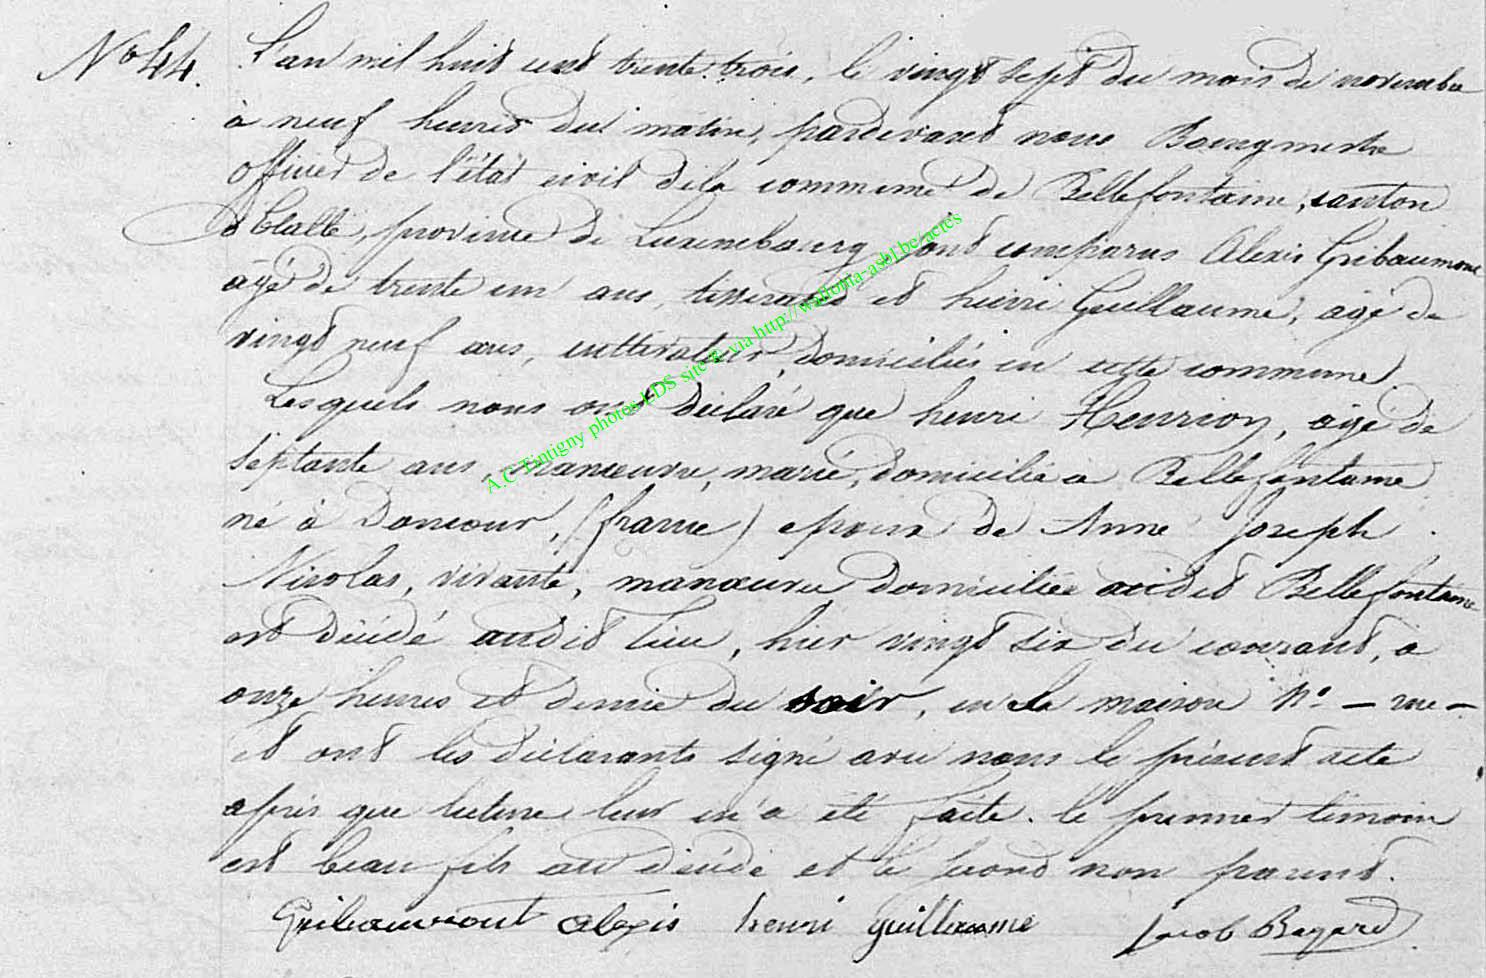 No 44.
L'an mil huit cent trente trois, le vingt sept du mois de novembre
à neuf heures du matin, pardevant nous Bourgmestre
officier de l'état civil de la commune de Bellefontaine, canton
d'Etalle, province de Luxembourg sont comparus Alexis Gribaumont
âgé de trente un ans, tisserand et henri Guillaume, âgé de
vingt neuf ans, cultivateur, domiciliés en cette commune
Lesquels nous ont déclaré que henri Henrion, âgé de
septante ans, manœuvre, marié, domicilié à Bellefontaine
né à Doncour, (france) epoux de Anne Joseph
Nicolas, vivante, manœuvre domiciliée audit Bellefontaine
est décédé audit lieu, hier vingt six du courant, à
onze heures et demie du soir, en la maison No
et ont les déclarants signé avec nous le présent acte
après que lecture leur en a été faite. le premier témoin
est beau fils au décédé et le second non parent.
Gribaumont alexis henri guillaume Jacob Bayard
A.C Tintigny photos LDS site & via http://wallonia-asbl.be/actes